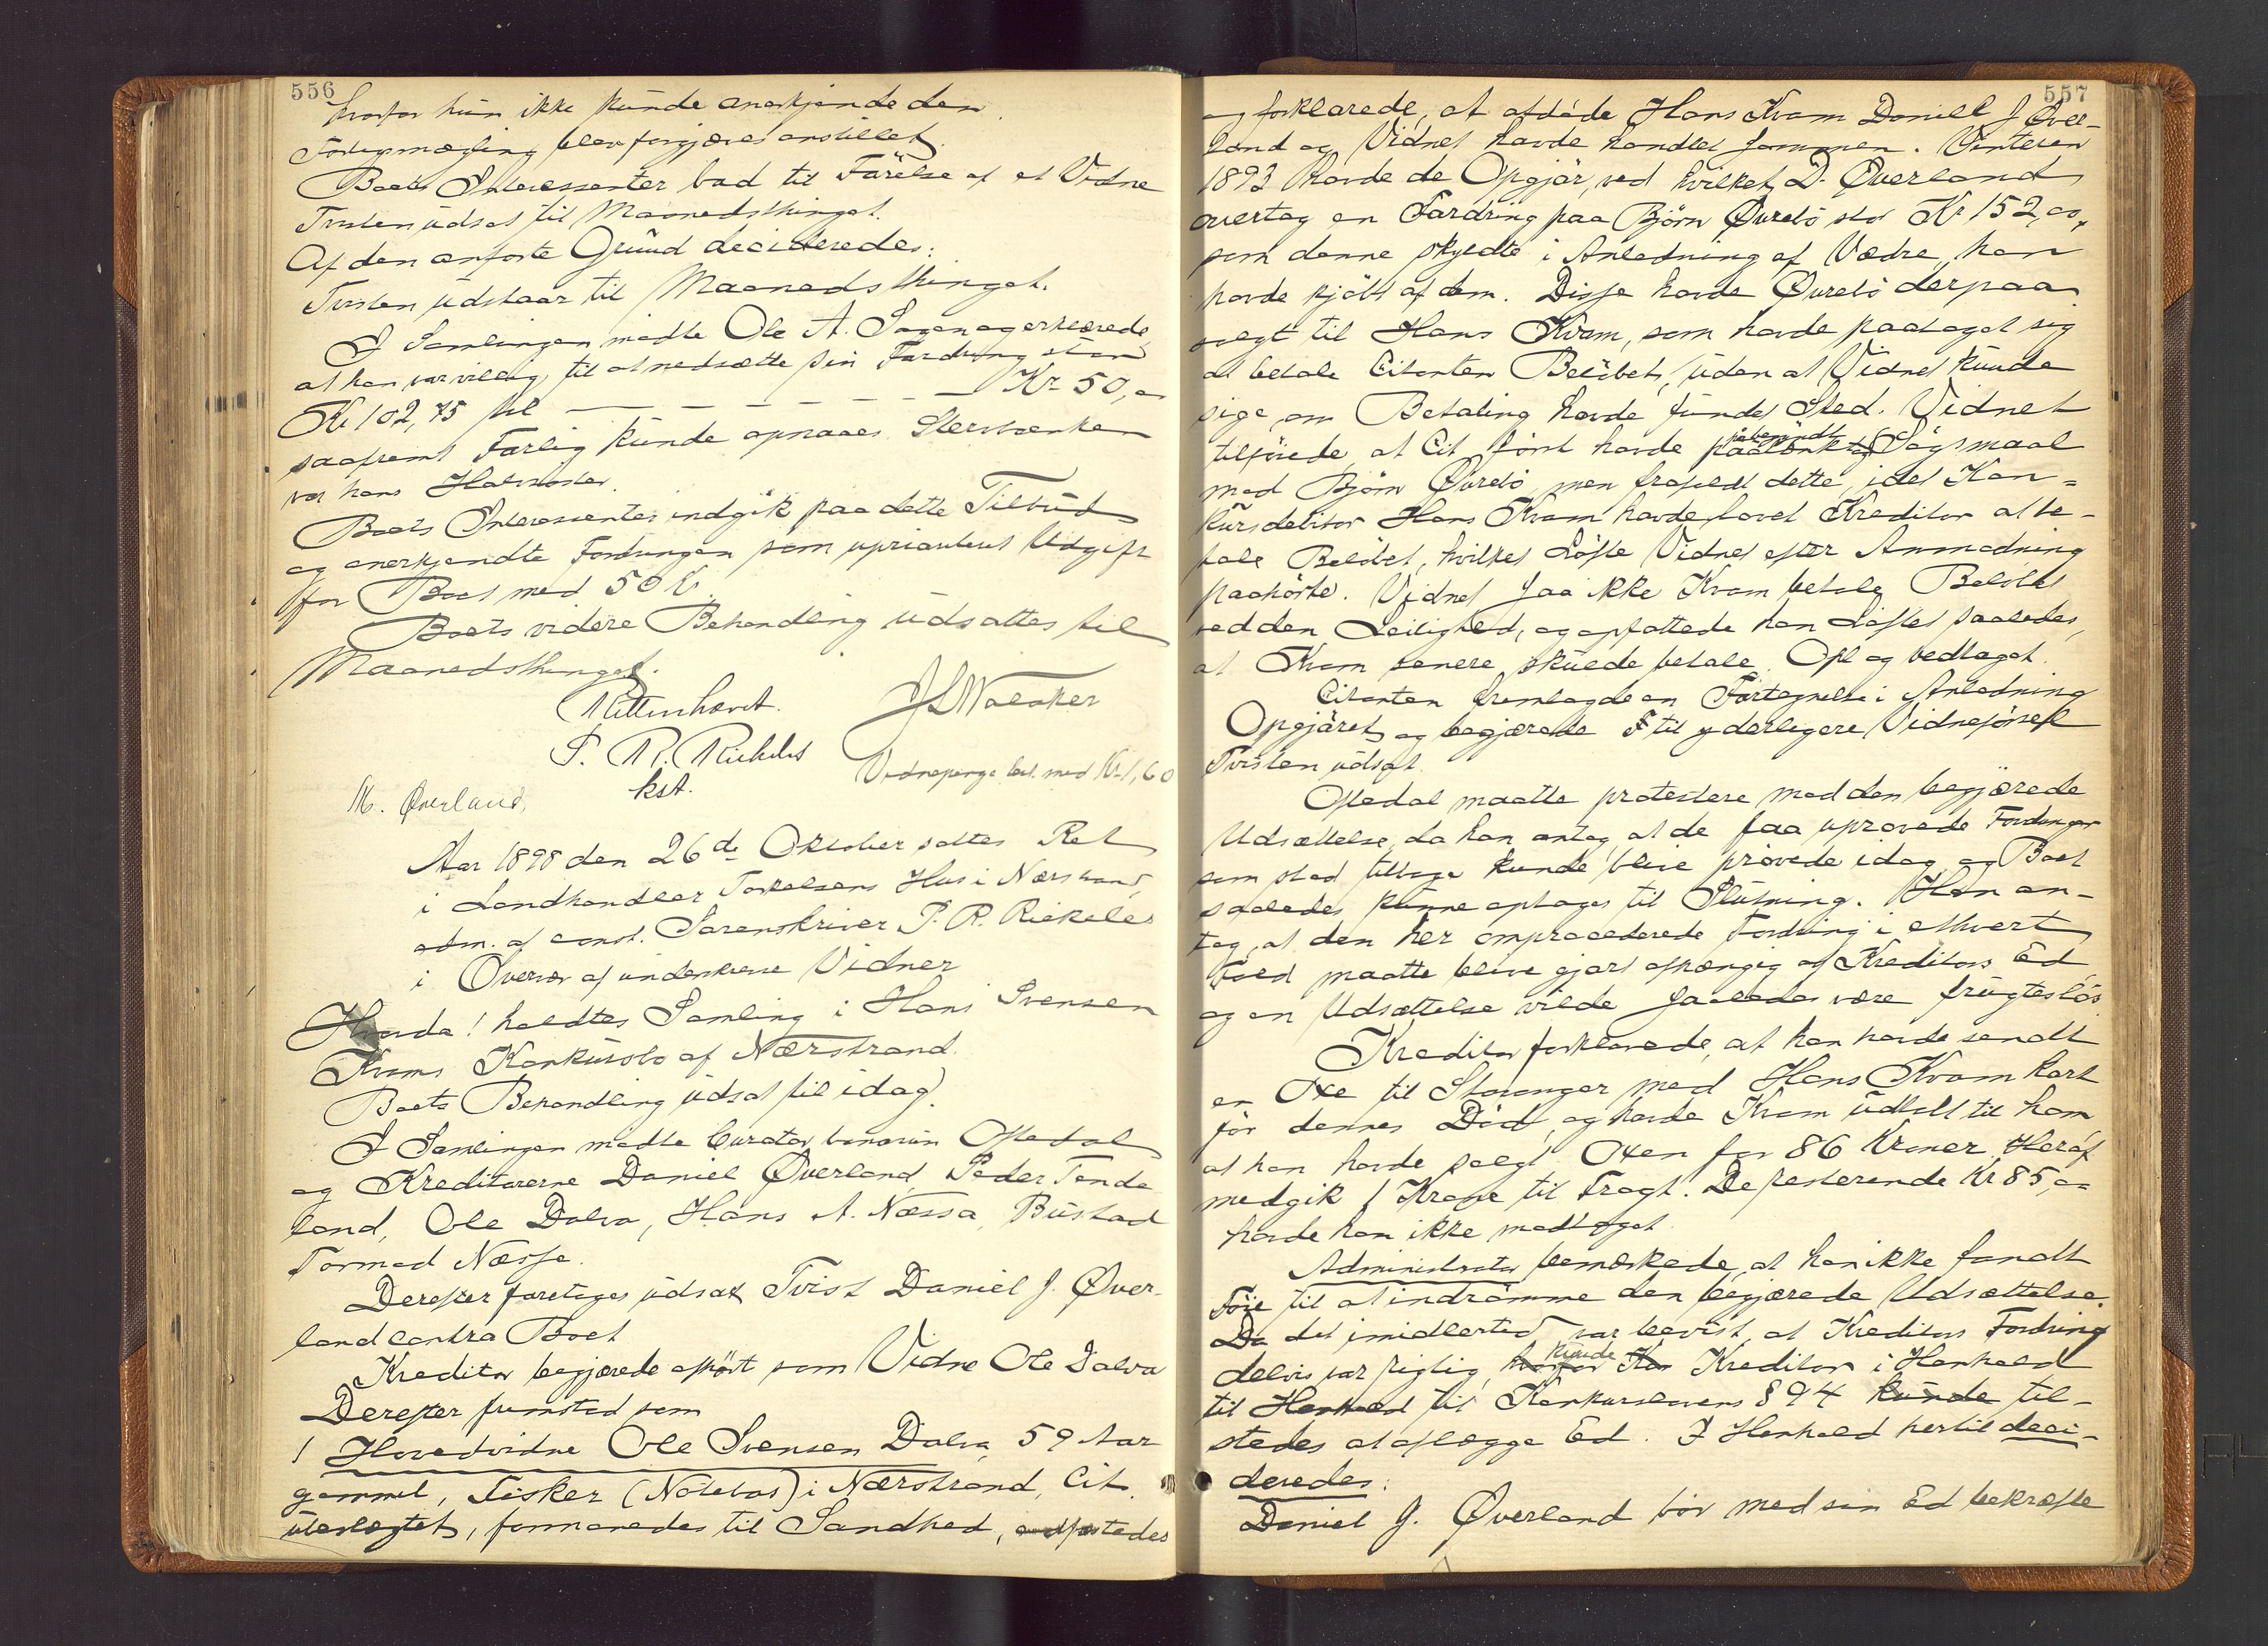 556
hvorfor hun ikke kunde anerkjende den
Forligsmægling blev forgjæves anstillet.
Boets Interessenter bad til Förelse af et Vidne
Tvisten udsat til Maanedsthinget.
Af den anførte Grund decideredes:
Tvisten udstaar til Maanedsthinget.
I Samlingen mødte Ole A. Sagen og erklærede
at han var villig til at nedsætte sin Fordring stor
Kr 102,75 til — — — — — — Kr 50,00
saafremt Forlig kunde opnaaes.
var hans
Boets Interessenter indgik paa dette Tilbud
og anerkjendte Fordringen som uprioriteret Udgift
for Boet med 50 Kr.
Boets videre Behandling udsattes til
Maanedsthinget.
J S Walaker
P. R. Rickeles
kst.
Vidnepenge bet. med Kr 1,60
M. Øverland,
Aar 1898 den 26de Oktober sattes Ret
i Landhandler Torkelsens Hus i Nærstrand,
adm. af const. Sorenskriver P. R. Rickeles
i Overvær af underskrevne Vidner
Hvorda! holdtes Samling i Hans Svensen
Kvams Konkursbo af Nærstrand.
Boets Behandling udsat til idag.
I Samlingen mødte Curator bonorum Oftedal
og Kreditorerne Daniel Øverland, Peder Tende
land, Ole Dalva, Hans A. Næssa, Bustad
Tormod Næsse.
Derefter foretoges udsat Tvist Daniel J. Øver-
land contra Boet
Kreditor begjærede afhört som Vidne Ole Dalva
Derefter fremstod som
1 Hovedvidne Ole Svensen Dalva, 59 Aar
gammel, Fisker (Notebas) i Nærstrand, Cit.
ubeslægtet, formanedes til Sandhed, edfæstedes
557
og forklarede, at afdöde Hans Kvam Daniel J Øver-
land og Vidnet havde handlet sammen. Vinteren
1893 havde de Opgjör, ved hvilket D. Øverland
overtog en Fordring paa Björn Övrebö stor Kr 152,00,
som denne skyldte i Anledning af Vædre, han
havde kjöbt af dem. Disse havde Övrebö derpaa
solgt til Hans Kvam, som havde paataget sig
at betale Citanten Belöbet, uden at Vidnet kunde
sige, om Betaling havde fundet Sted. Vidnet
tilföiede, at Cit först havde paatænkt påbegyndt Sögsmaal
mod Björn Övrebö, men frafaldt dette, idet Kon-
kursdebitor Hans Kvam havde lovet Kreditor at be-
tale Belöbet, hvilket Löfte Vidnet efter Anmodning
paahörte. Vidnet saa ikke Kvam betale Belöbet
ved den Leilighed, og opfattede han Löftet saaledes,
at Kvam senere skulde betale. Opl og vedtaget.
Citanten fremlagde en Fortegnelse i Anledning
Opgjöret og begjærede til yderligere Vidneförsel
Tvisten udsat.
Oftedal maatte protestere mod den begjærede
Udsættelse, da han antog, at de faa uprövede Fordringer
som stod tilbage kunde blive prövede idag, og Boet
saaledes kunne optages til Slutning. Han an-
tog, at den her omprocederede Fordring i ethvert
Fald maatte blive gjort afhængig af Kreditors Ed,
og en Udsættelse vilde saaledes være frugteslös.
Kreditor forklarede, at han havde sendt
en Oxe til Stavanger med Hans Kvam kort
för dennes Död, og havde Kvam udtalt til ham,
at han havde solgt Oxen for 86 Kroner. Heraf
medgik 1 Krone til Fragt. De resterende Kr 85,00
havde han ikke modtaget.
Administrator bemærkede, at han ikke fandt
Föie til at indrömme den begjærede Udsættelse.
Da det imidlertid var bevist, at Kreditors Fordring
delvis var rigtig, kunde Kreditor i Henhold
til Henhold til Konkurslovens § 94 kunde til-
stedes at aflægge Ed. I Henhold hertil deci-
deredes:
Daniel J. Øverland bör med sin Ed bekræfte